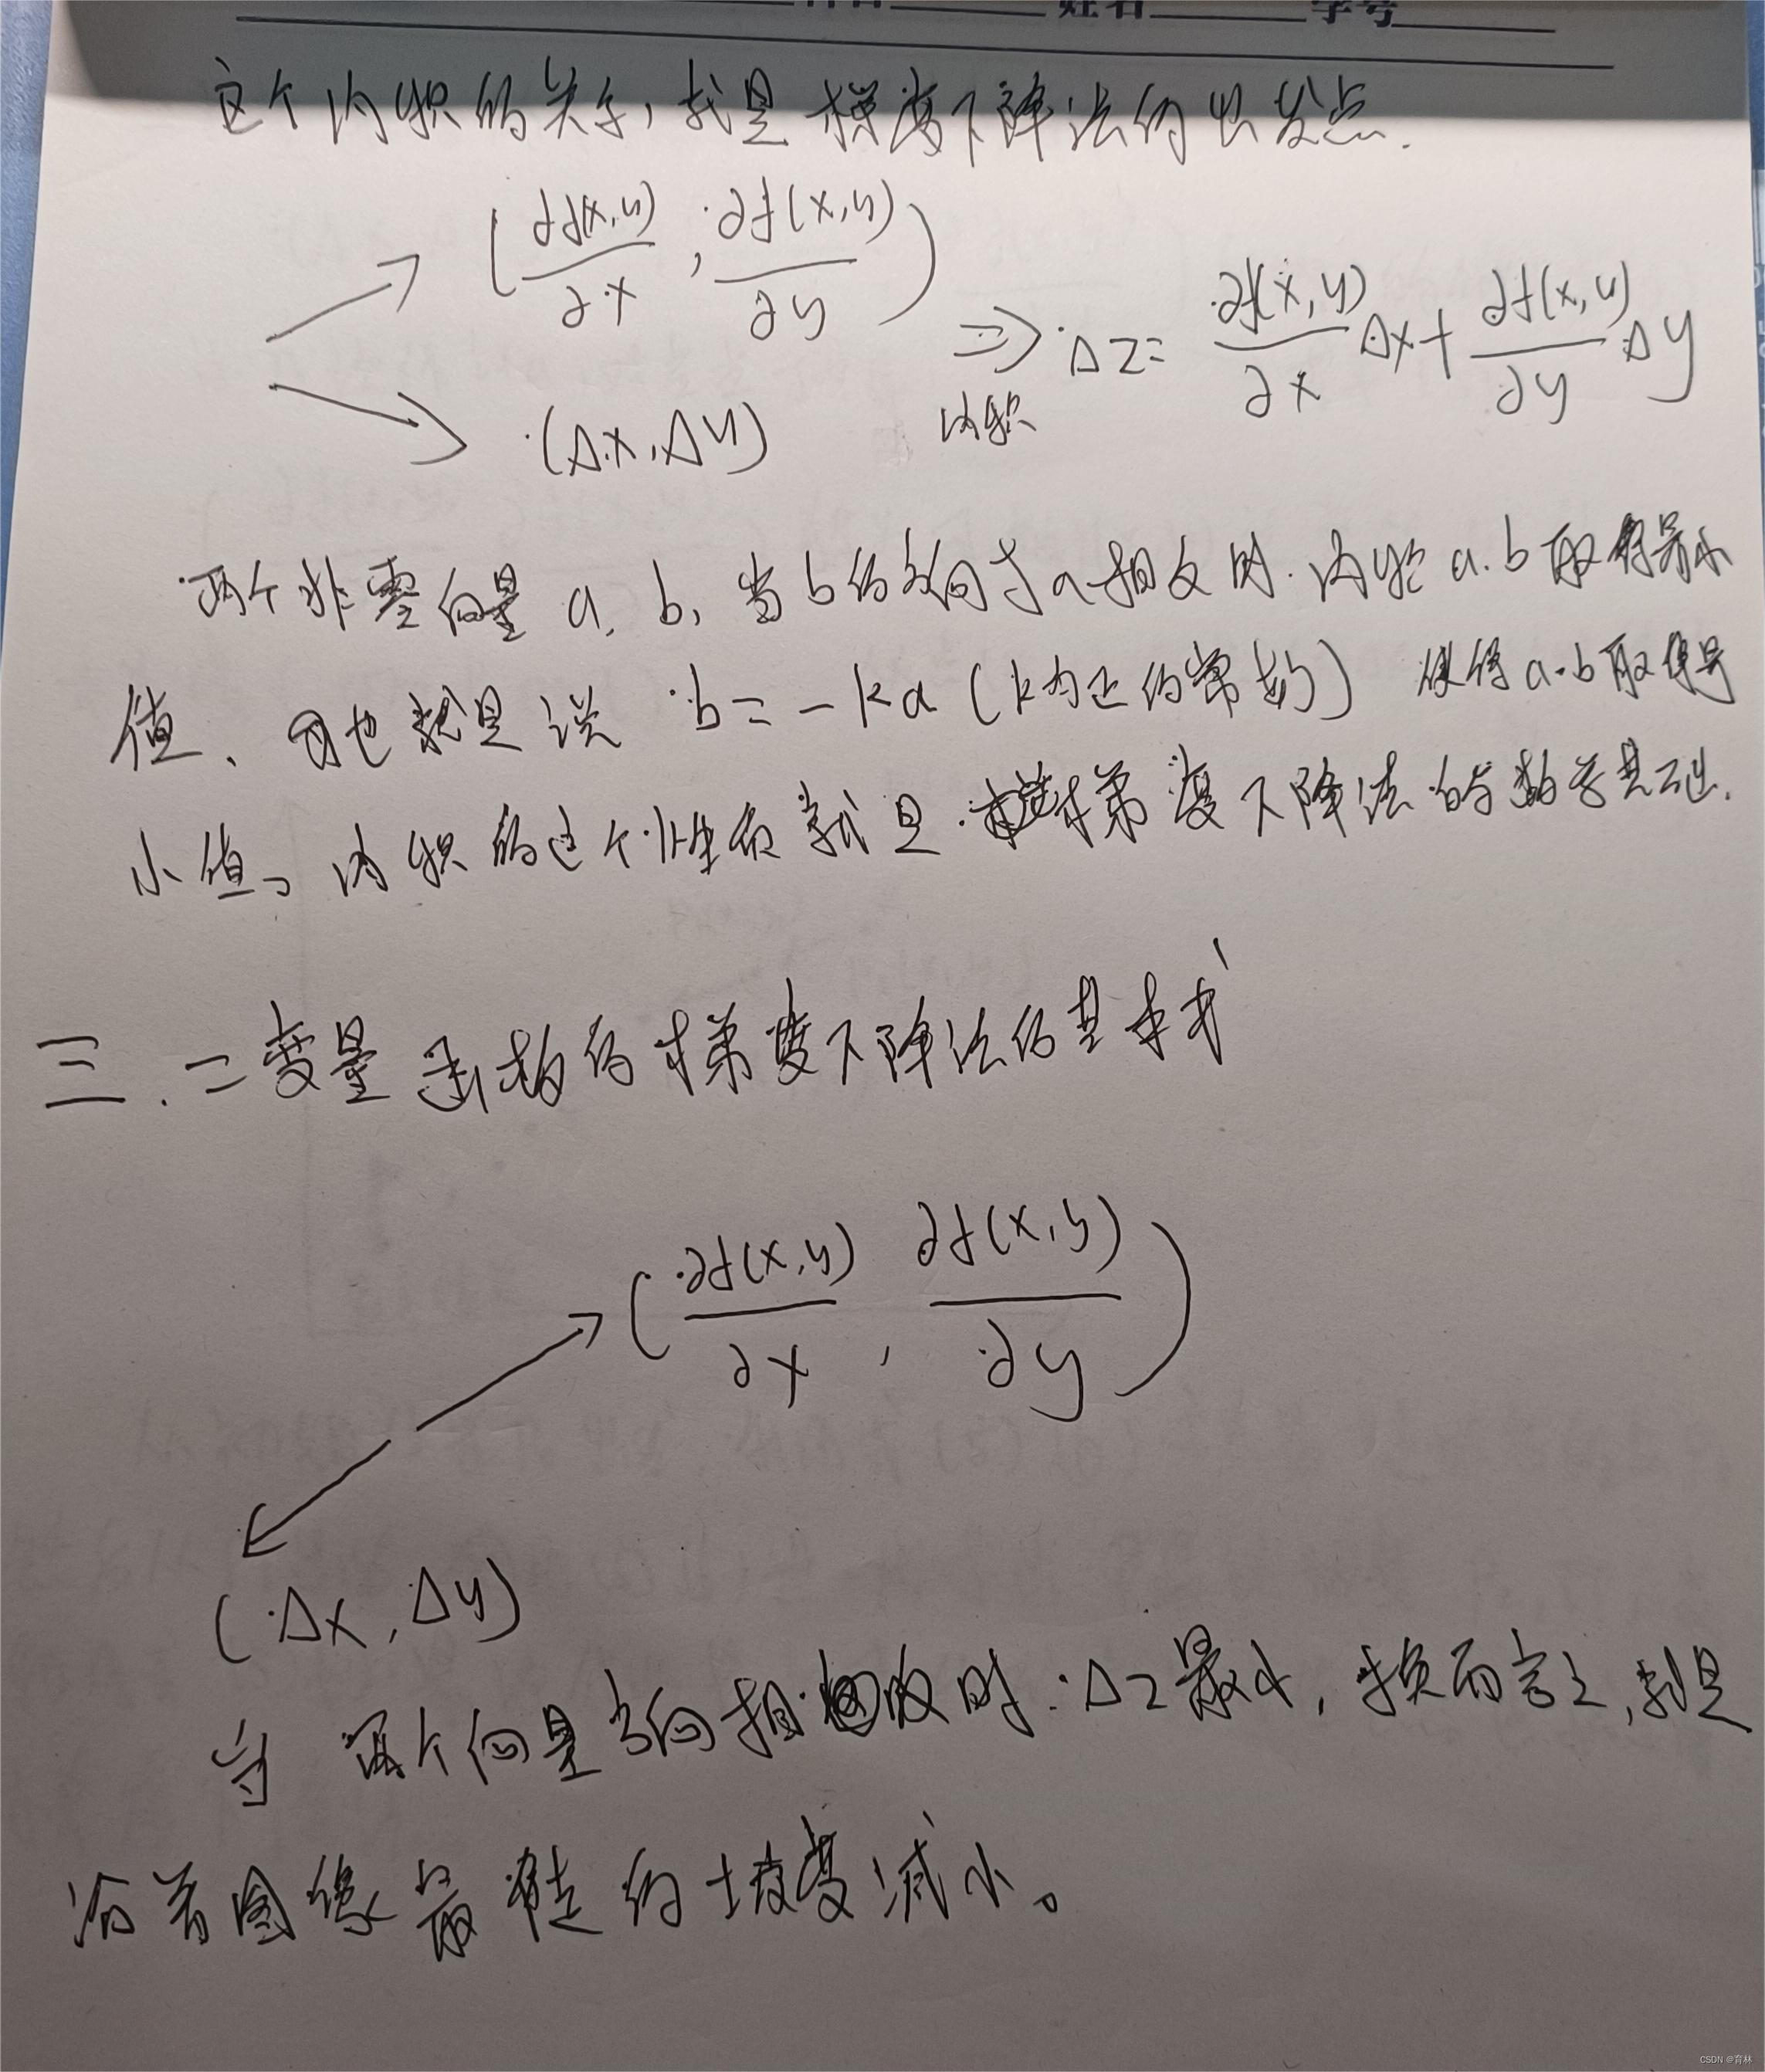 姓名 学号
这个内积的关系,就是梯度下降法的出发点.
(∂f(x,y)/∂x , ∂f(x,y)/∂y)
⇒ ΔZ = ∂f(x,y)/∂x Δx + ∂f(x,y)/∂y Δy
(Δx,Δy)
内积
两个非零向量 a, b, 当b的方向与a相反时.内积 a.b 取得最小
值、也就是说 b=-ka (k为正的常数) 使得 a·b 取得最
小值。内积的这个性质就是梯度下降法的数学基础.
三.二变量函数的梯度下降法的基本式
(∂f(x,y)/∂x , ∂f(x,y)/∂y)
(Δx,Δy)
当两个向量方向相反时:Δz最小,换而言之,就是
沿着图像最陡的坡度减小。
CSDN @育林